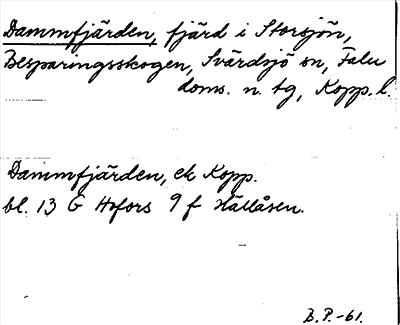 Dammfjärden, fjärd i Storsjön,
Besparingsskogen, Svärdsjö sn, Falu
doms. n. tg, Kopp. l.
Dammfjärden, ek Kopp.
bl. 13 G Hofors 9 f Hällåsen.
B.P.-61.